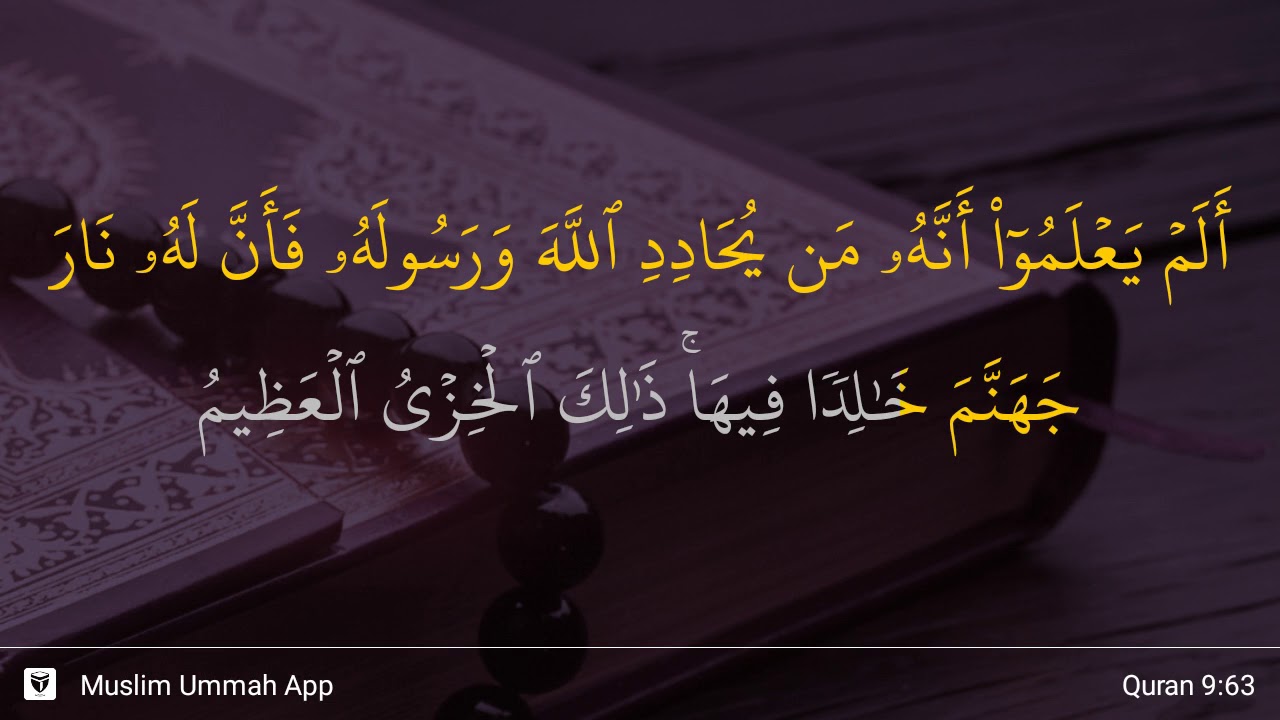 أَلَمۡ يَعۡلَمُوٓاْ أَنَّهُۥ مَن يُحَادِدِ ٱللَّهَ وَرَسُولَهُۥ فَأَنَّ لَهُۥ نَارَ
جَهَنَّمَ خَٰلِدٗا فِيهَاۚ ذَٰلِكَ ٱلۡخِزۡيُ ٱلۡعَظِيمُ
Muslim Ummah App
Quran 9:63